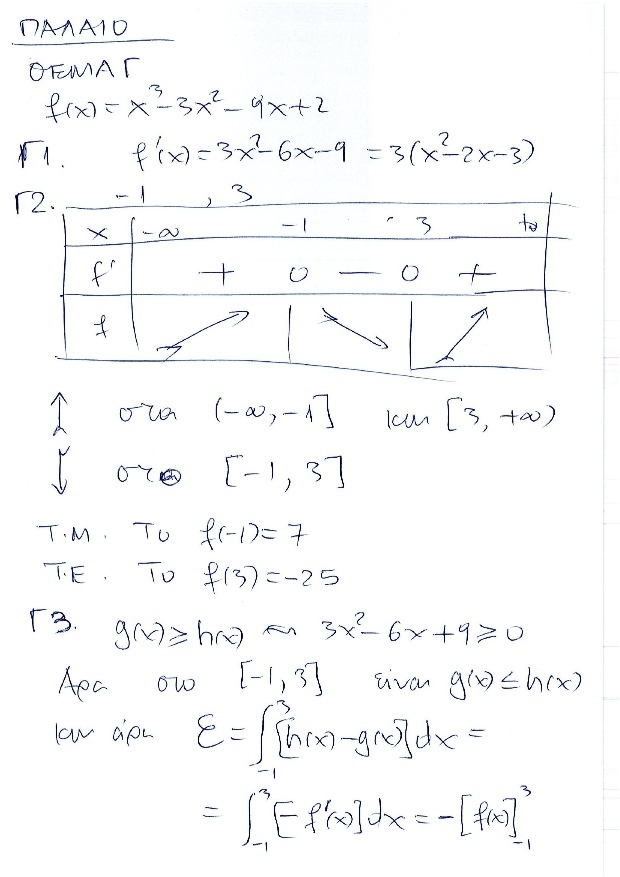 ΠΑΛΑΙΟ
ΘΕΜΑ Γ
f(x) = x³-3x²-9x+2
Γ1. f'(x) = 3x²-6x-9 = 3(x²-2x-3)
Γ2. -1 , 3
x -∞ -1 3 +∞
f' + 0 — 0 +
f ↗ ↘ ↗
↑ στα (-∞, -1] και [3, +∞)
↓ στο [-1, 3]
Τ.Μ. Το f(-1) = 7
Τ.Ε. Το f(3) = -25
Γ3. g(x) ≥ h(x) 3x²-6x+9 ≥ 0
Άρα στο [-1, 3] είναι g(x) ≤ h(x)
και άρα E = ∫₋₁³ [h(x)-g(x)]dx =
= ∫₋₁³ [-f'(x)]dx = -[f(x)]₋₁³